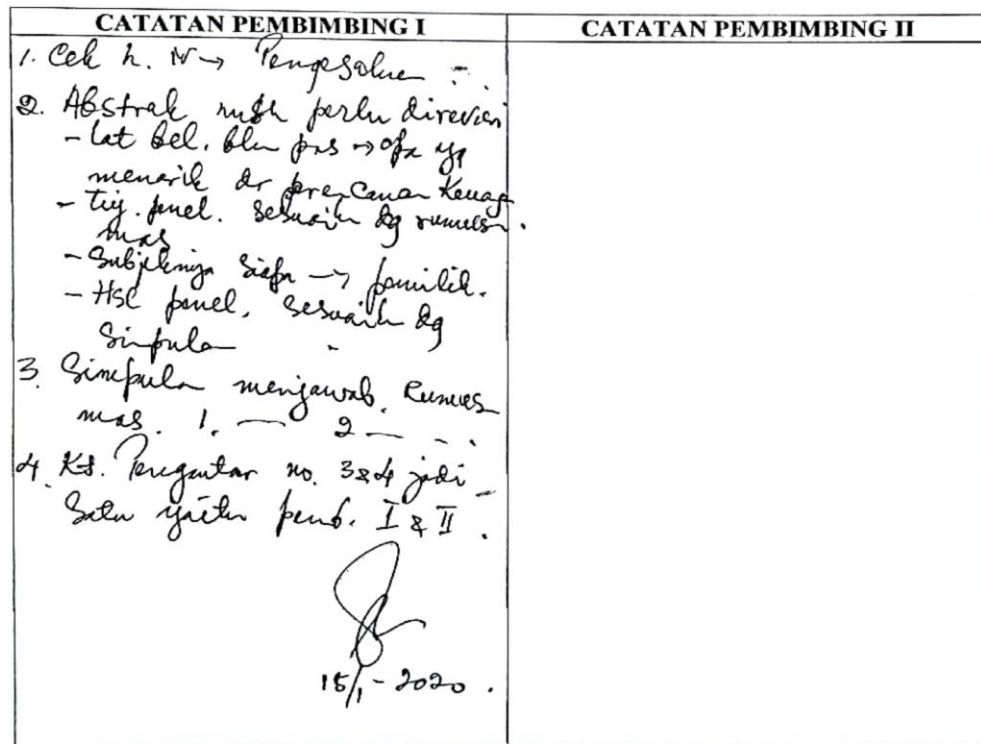 CATATAN PEMBIMBING I
CATATAN PEMBIMBING II
1. Cek h. iv → Pengesahan
2. Abstrak msh perlu direvisi
- Lat bel. blm pas → apa yg
menarik dr perencanaan Keuag
- Tuj. penel. sesuaik dg rumusn.
mas
- Subjeknya siapa → pemilik.
- Hsl penel. sesuaik dg
Simpulan
3. Simpulan menjawab Rumus
mas. 1. — 2 — - .
4. Kt. Pengantar no. 3&4 jadi
Satu yaitu pemb. I & II.
15/1 - 2020.